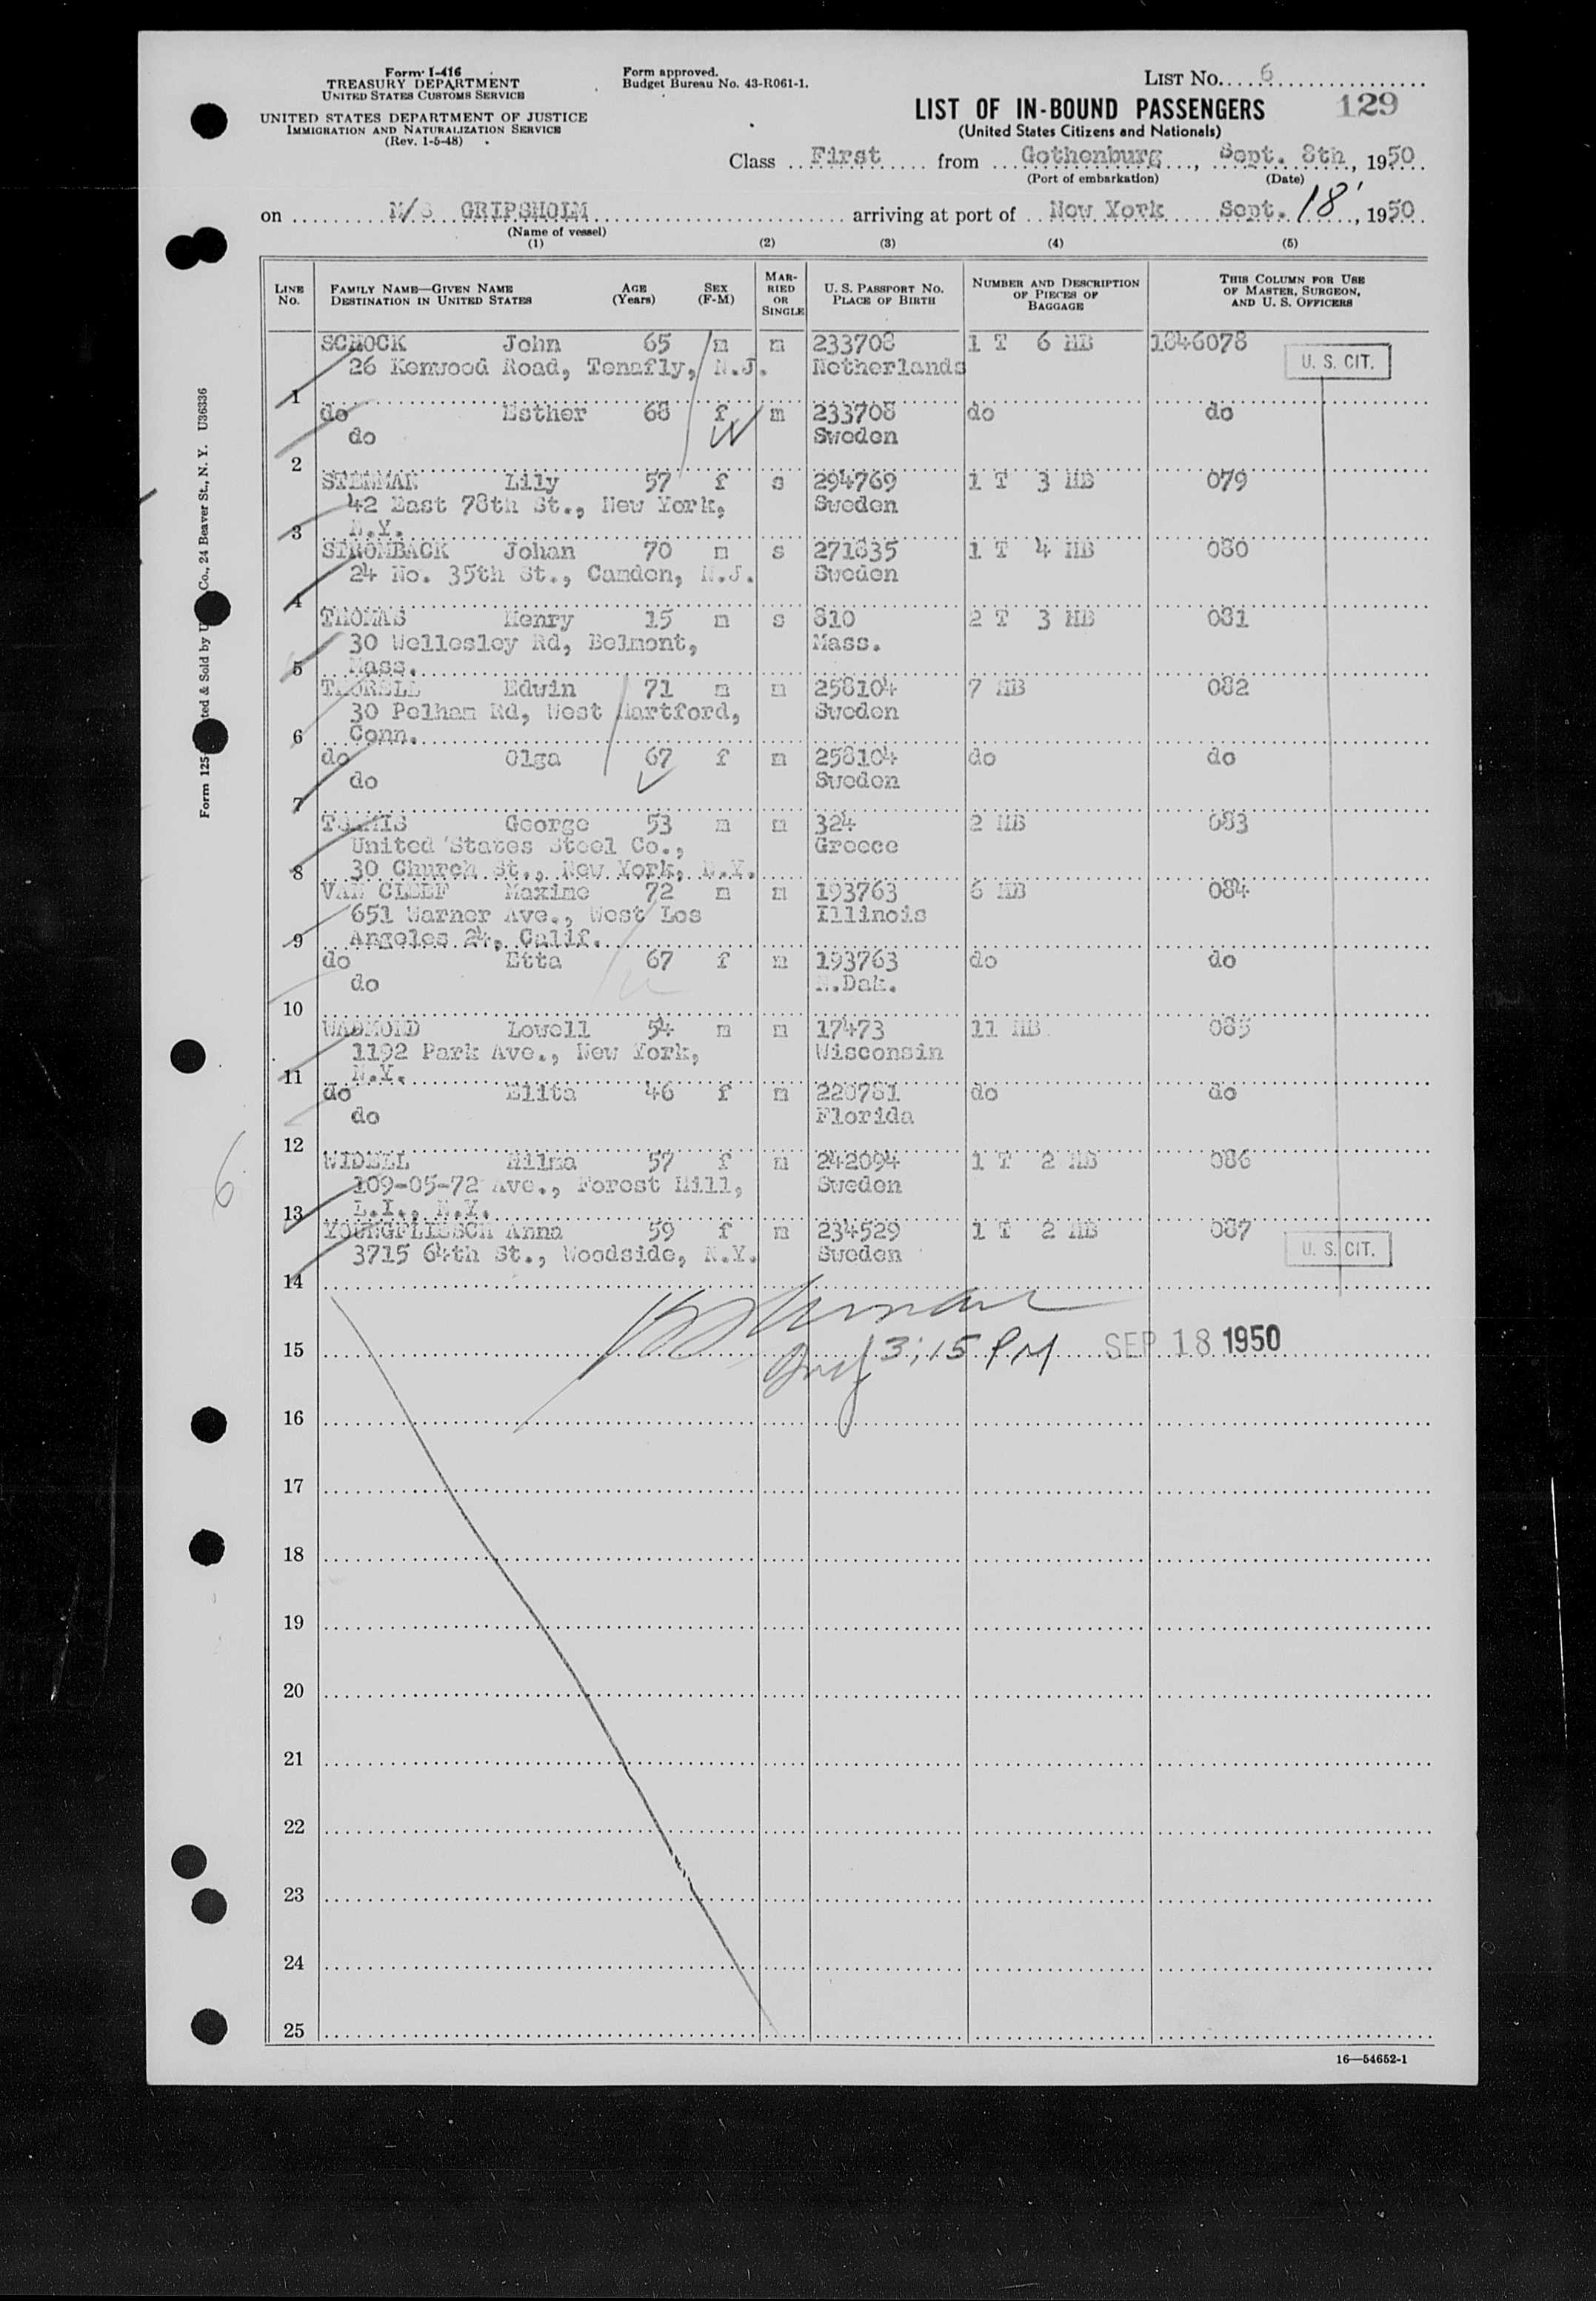 Form I-416
TREASURY DEPARTMENT
UNITED STATES CUSTOMS SERVICE
UNITED STATES DEPARTMENT OF JUSTICE
IMMIGRATION AND NATURALIZATION SERVICE
(Rev. 1-5-48)
Form approved.
Budget Bureau No. 43-R061-1.
LIST NO. 6
LIST OF IN-BOUND PASSENGERS 129
(United States Citizens and Nationals)
Class First from Gothenburg, Sept. 8th, 1950
(Port of embarkation) (Date)
on M/S GRIPSHOLM arriving at port of New York Sept. 18, 1950
(Name of vessel)
(1) (2) (3) (4) (5)
LINE NO. FAMILY NAME—GIVEN NAME DESTINATION IN UNITED STATES AGE (Years) SEX (F-M) MARRIED OR SINGLE U. S. PASSPORT NO. PLACE OF BIRTH NUMBER AND DESCRIPTION OF PIECES OF BAGGAGE THIS COLUMN FOR USE OF MASTER, SURGEON, AND U. S. OFFICERS
SCHOCK John 65 m m 233708 1 T 6 HB 1846078
26 Kenwood Road, Tenafly, N.J. Netherlands U. S. CIT.
1
do Esther 68 f m 233708 do do
do Sweden
2
STENMAN Lily 57 f s 294769 1 T 3 HB 079
42 East 78th St., New York, Sweden
3 N.Y.
STROMBACK Johan 70 m s 271835 1 T 4 HB 080
24 No. 35th St., Camden, N.J. Sweden
4
THOMAS Henry 15 m s 810 2 T 3 HB 081
30 Wellesley Rd, Belmont, Mass.
5 Mass.
THORELL Edwin 71 m m 258104 7 HB 082
30 Pelham Rd, West Hartford, Sweden
6 Conn.
do Olga 67 f m 258104 do do
do Sweden
7
George 53 m m 324 2 HB 083
United States Steel Co., Greece
8 30 Church St., New York, N.Y.
VAN CLEEF Maxime 72 m m 193763 6 HB 084
651 Warner Ave., West Los Illinois
9 Angeles 24, Calif.
do Etta 67 f m 193763 do do
do N.Dak.
10
WADMOND Lowell 54 m m 17473 11 HB 085
1192 Park Ave., New York, Wisconsin
11 N.Y.
do Elita 46 f m 220781 do do
do Florida
12
WIDELL Hilma 57 f m 242094 1 T 2 HB 086
109-05-72 Ave., Forest Hill, Sweden
13 L.I., N.Y.
YOUNGFLEESCH Anna 59 f m 234529 1 T 2 HB 087
3715 64th St., Woodside, N.Y. Sweden U. S. CIT.
14
15 3:15 PM SEP 18 1950
16
17
18
19
20
21
22
23
24
25
16—54652-1
6
Co., 24 Beaver St., N. Y. U36336
ted & Sold by U
Form 125